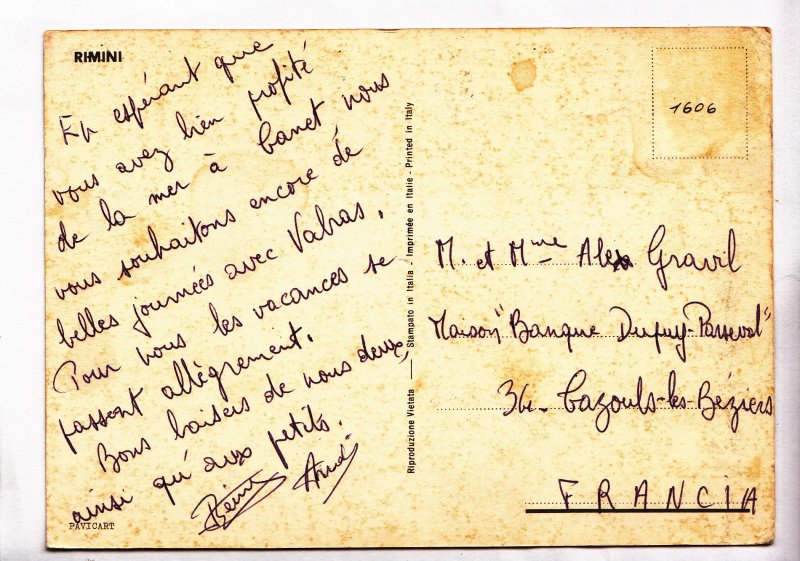 RIMINI
En espérant que
vous avez bien profité
de la mer à Canet, nous
vous souhaitons encore de
belles journées avec Valras.
Pour nous les vacances se
passent allègrement.
Bons baisers de nous deux,
ainsi qu'aux petits.
PAVICART
Riproduzione Vietata — Stampato in Italia - Imprimée en Italie - Printed in Italy
1606
M. et Mme Alex Gravil
Maison "Banque Dupuy-Parseval"
34 - Cazouls-les-Béziers
FRANCIA